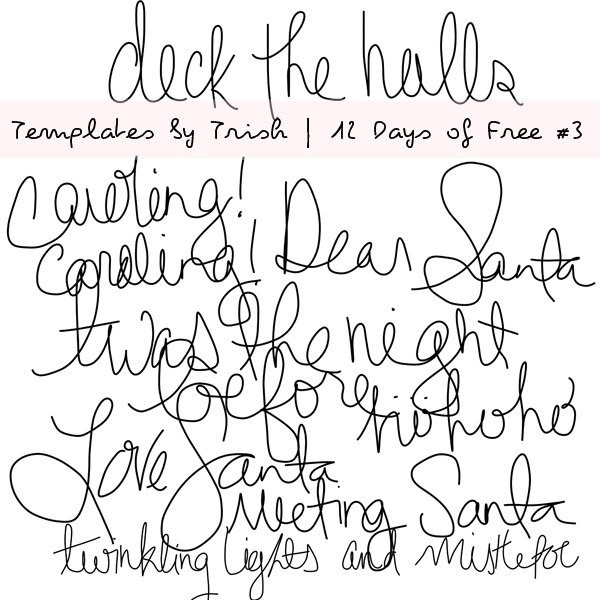 deck the halls
Templates by Trish | 12 Days of Free #3
Caroling!
Caroling! Dear Santa
twas the night
before ho ho ho
Love Santa
Meeting Santa
twinkling lights and mistletoe